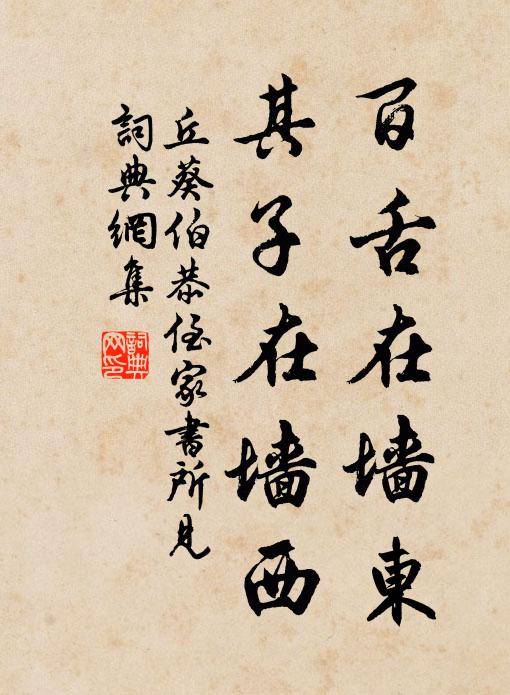 百舌在墙東
其子在墙西
丘葵伯恭侄家書所見
詞典網集
詞典網印